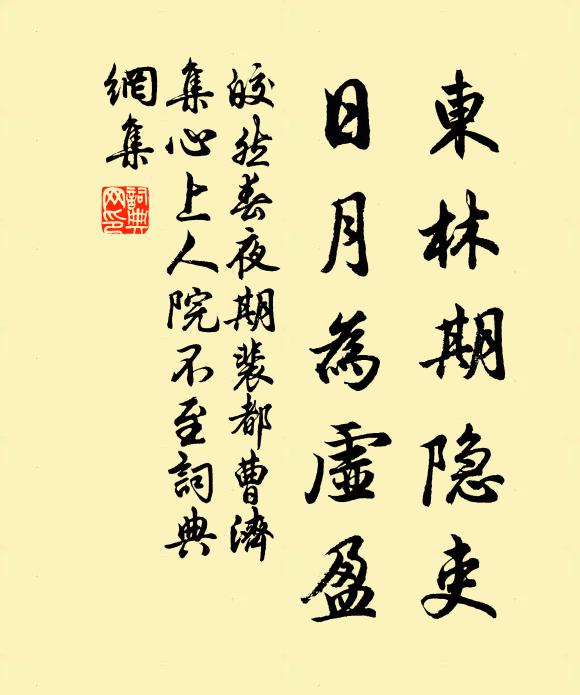 東林期隐吏
日月為虛盈
皎然春夜期裴都曹濟
集心上人院不至詞典
網集
詞典
网印